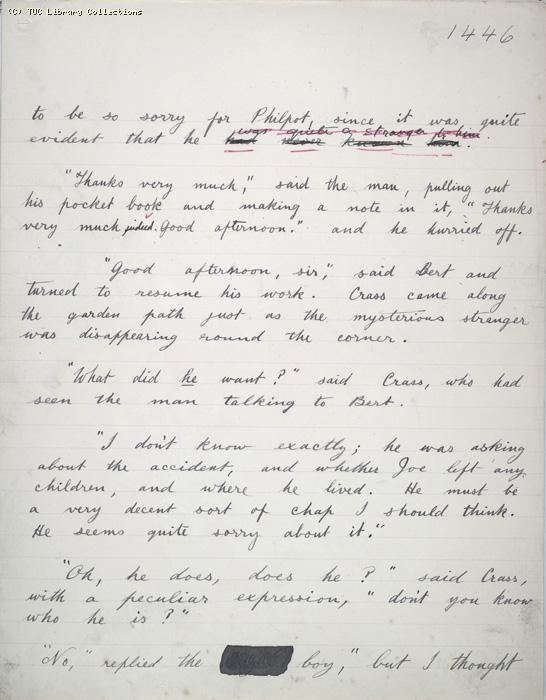 (C) TUC Library Collections
1446
to be so sorry for Philpot, since it was quite
was quite a stranger to him.
evident that he had never known him.
"Thanks very much," said the man, pulling out
his pocket book and making a note in it, "Thanks
very much indeed. Good afternoon." and he hurried off.
"Good afternoon, sir," said Bert and
turned to resume his work. Crass came along
the garden path just as the mysterious stranger
was disappearing round the corner.
"What did he want?" said Crass, who had
seen the man talking to Bert.
"I don't know exactly; he was asking
about the accident, and whether Joe left any
children, and where he lived. He must be
a very decent sort of chap I should think.
He seems quite sorry about it."
"Oh, he does, does he?" said Crass,
with a peculiar expression, "don't you know
who he is?"
"No," replied the boy," but I thought